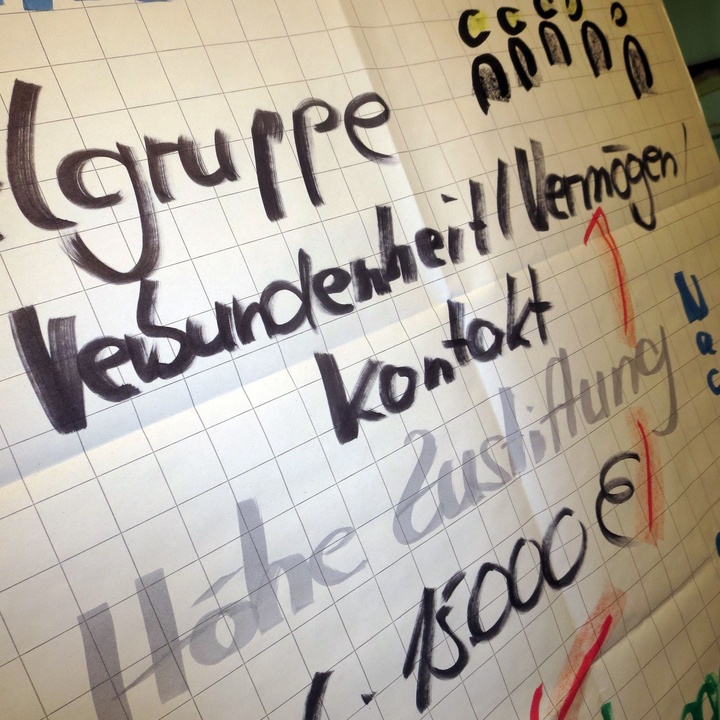 lgruppe
Verbundenheit/Vermögen/
Kontakt
Höhe Zustiftung
15000 €